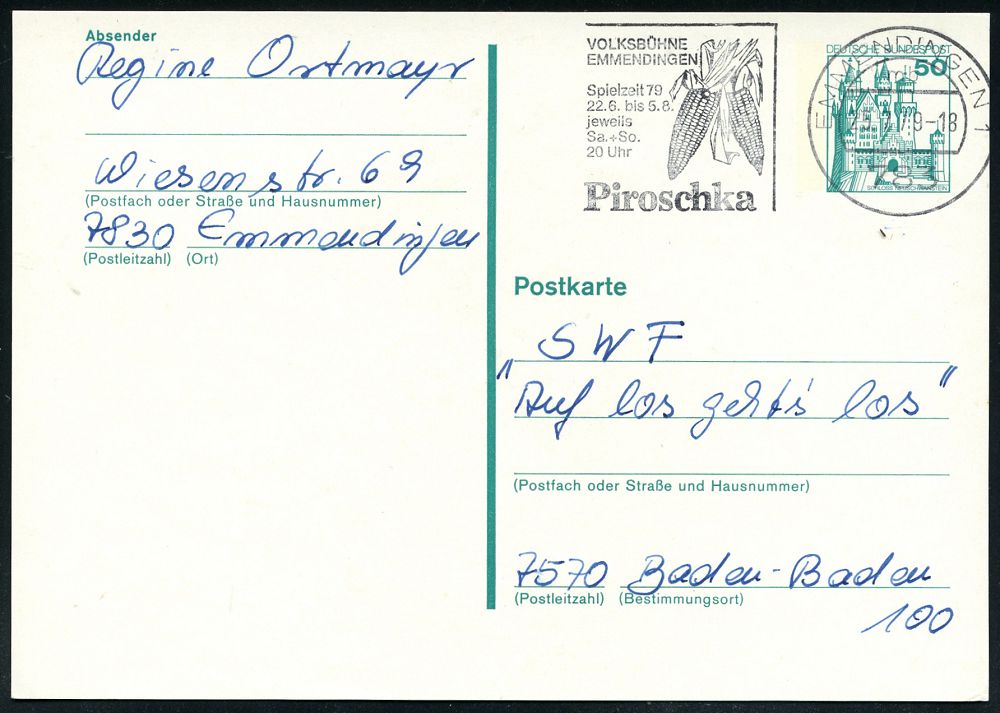 Absender
Regine Ortmayr
Wiesenstr. 69
(Postfach oder Straße und Hausnummer)
7830 Emmendingen
(Postleitzahl) (Ort)
VOLKSBÜHNE
EMMENDINGEN
Spielzeit 79
22.6. bis 5.8.
jeweils
Sa.+So.
20 Uhr
Piroschka
DEUTSCHE BUNDESPOST
50
SCHLOSS NEUSCHWANSTEIN
EMMENDINGEN 1
79-18
Postkarte
SWF
"Auf los geht's los"
(Postfach oder Straße und Hausnummer)
7570 Baden-Baden
(Postleitzahl) (Bestimmungsort)
100